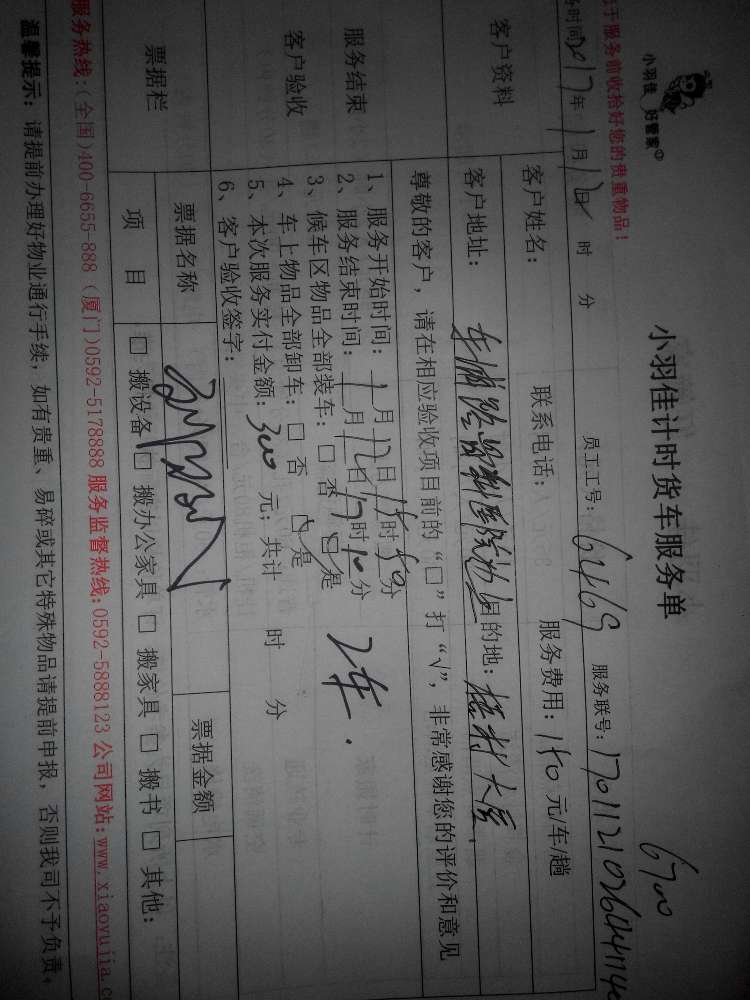 小羽佳 好管家
小羽佳计时货车服务单
6700
于服务前收拾好您的贵重物品!
务时间2017年1月12日 时 分
员工工号: 6469
服务联号:
客户资料
客户姓名:
联系电话:
服务费用: 150 元/车/趟
客户地址:
目的地:
尊敬的客户,请在相应验收项目前的“□”打“√”,非常感谢您的评价和意见
服务结束
客户验收
1、服务开始时间: 1月12日15时50分
2、服务结束时间: 1月12日17时10分
2车.
3、候车区物品全部装车: □ 否 ☑ 是
4、车上物品全部卸车: □ 否 ☑ 是
5、本次服务实付金额: 300 元; 共计 时 分
6、客户验收签字:
票据栏
票据名称
票据金额
项目
□ 搬设备 □ 搬办公家具 □ 搬家具 □ 搬书 □ 其他:
服务热线:(全国)400-6655-888 (厦门)0592-5178888 服务监督热线:0592-5888123 公司网站:www.xiaoyujia.c
温馨提示: 请提前办理好物业通行手续,如有贵重、易碎或其它特殊物品请提前申报,否则我司不予负责。